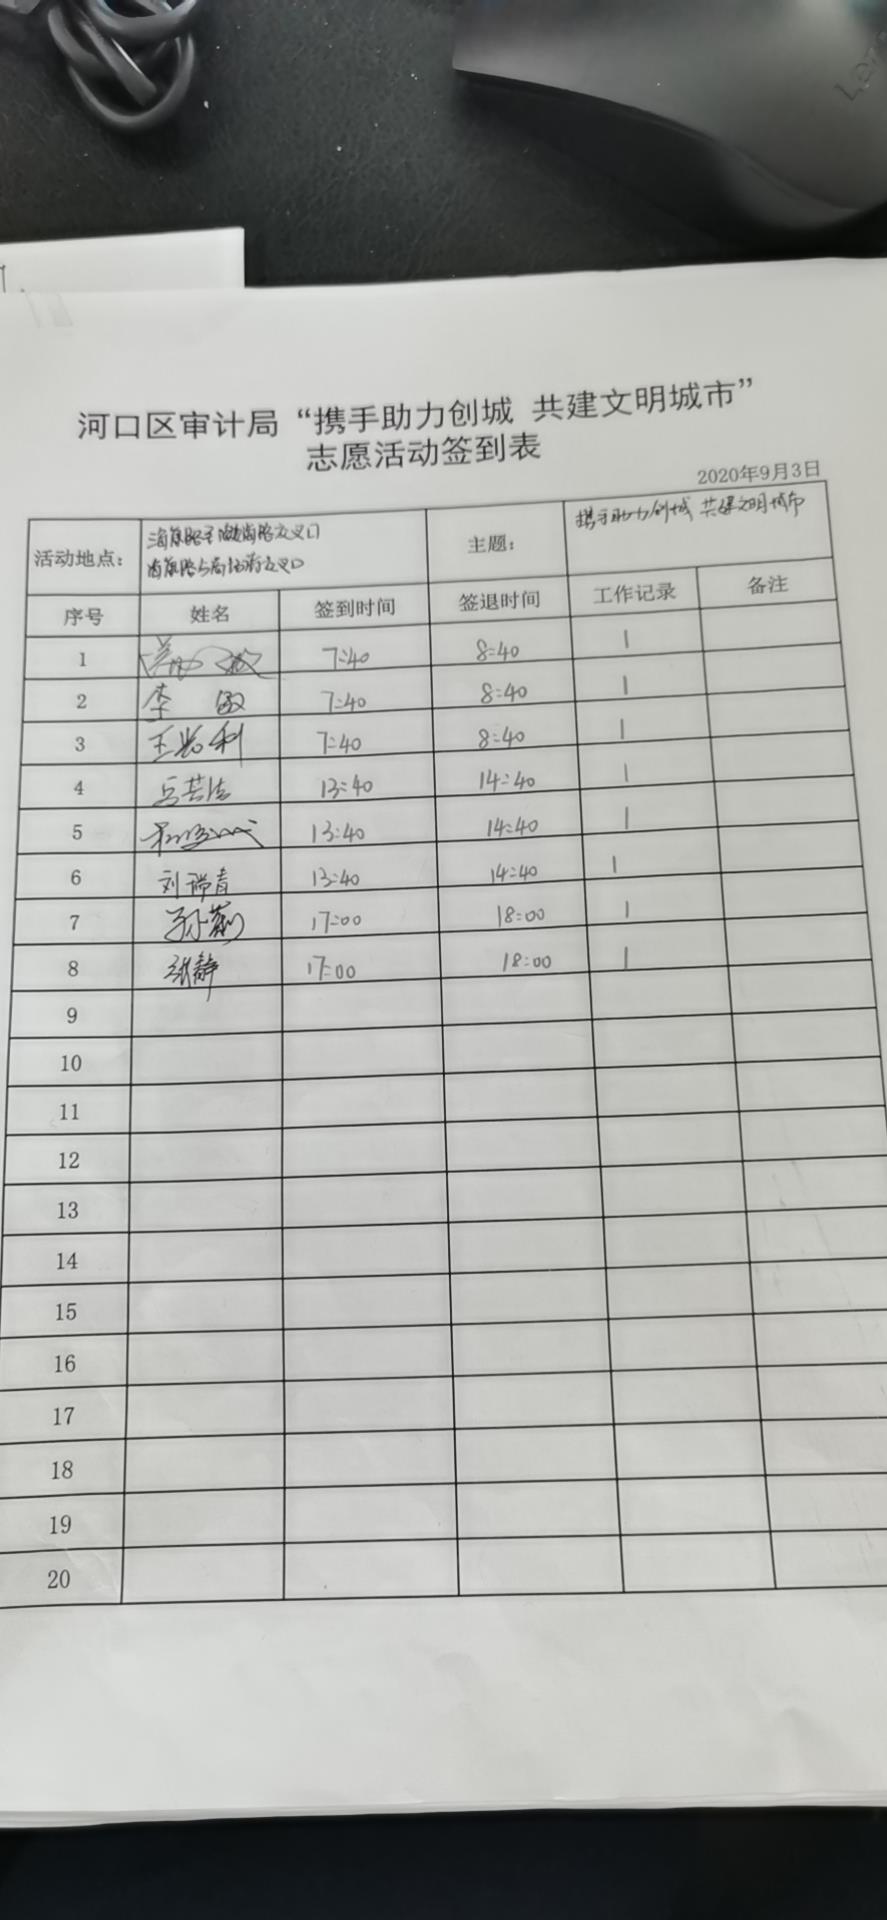 河口区审计局“携手助力创城 共建文明城市”
志愿活动签到表
2020年9月3日
活动地点： 主题： 携手助力创城 共建文明城市
序号 姓名 签到时间 签退时间 工作记录 备注
1 7:40 8:40 1
2 李敏 7:40 8:40 1
3 7:40 8:40 1
4 13:40 14:40 1
5 13:40 14:40 1
6 刘瑞青 13:40 14:40 1
7 17:00 18:00 1
8 张静 17:00 18:00 1
9
10
11
12
13
14
15
16
17
18
19
20